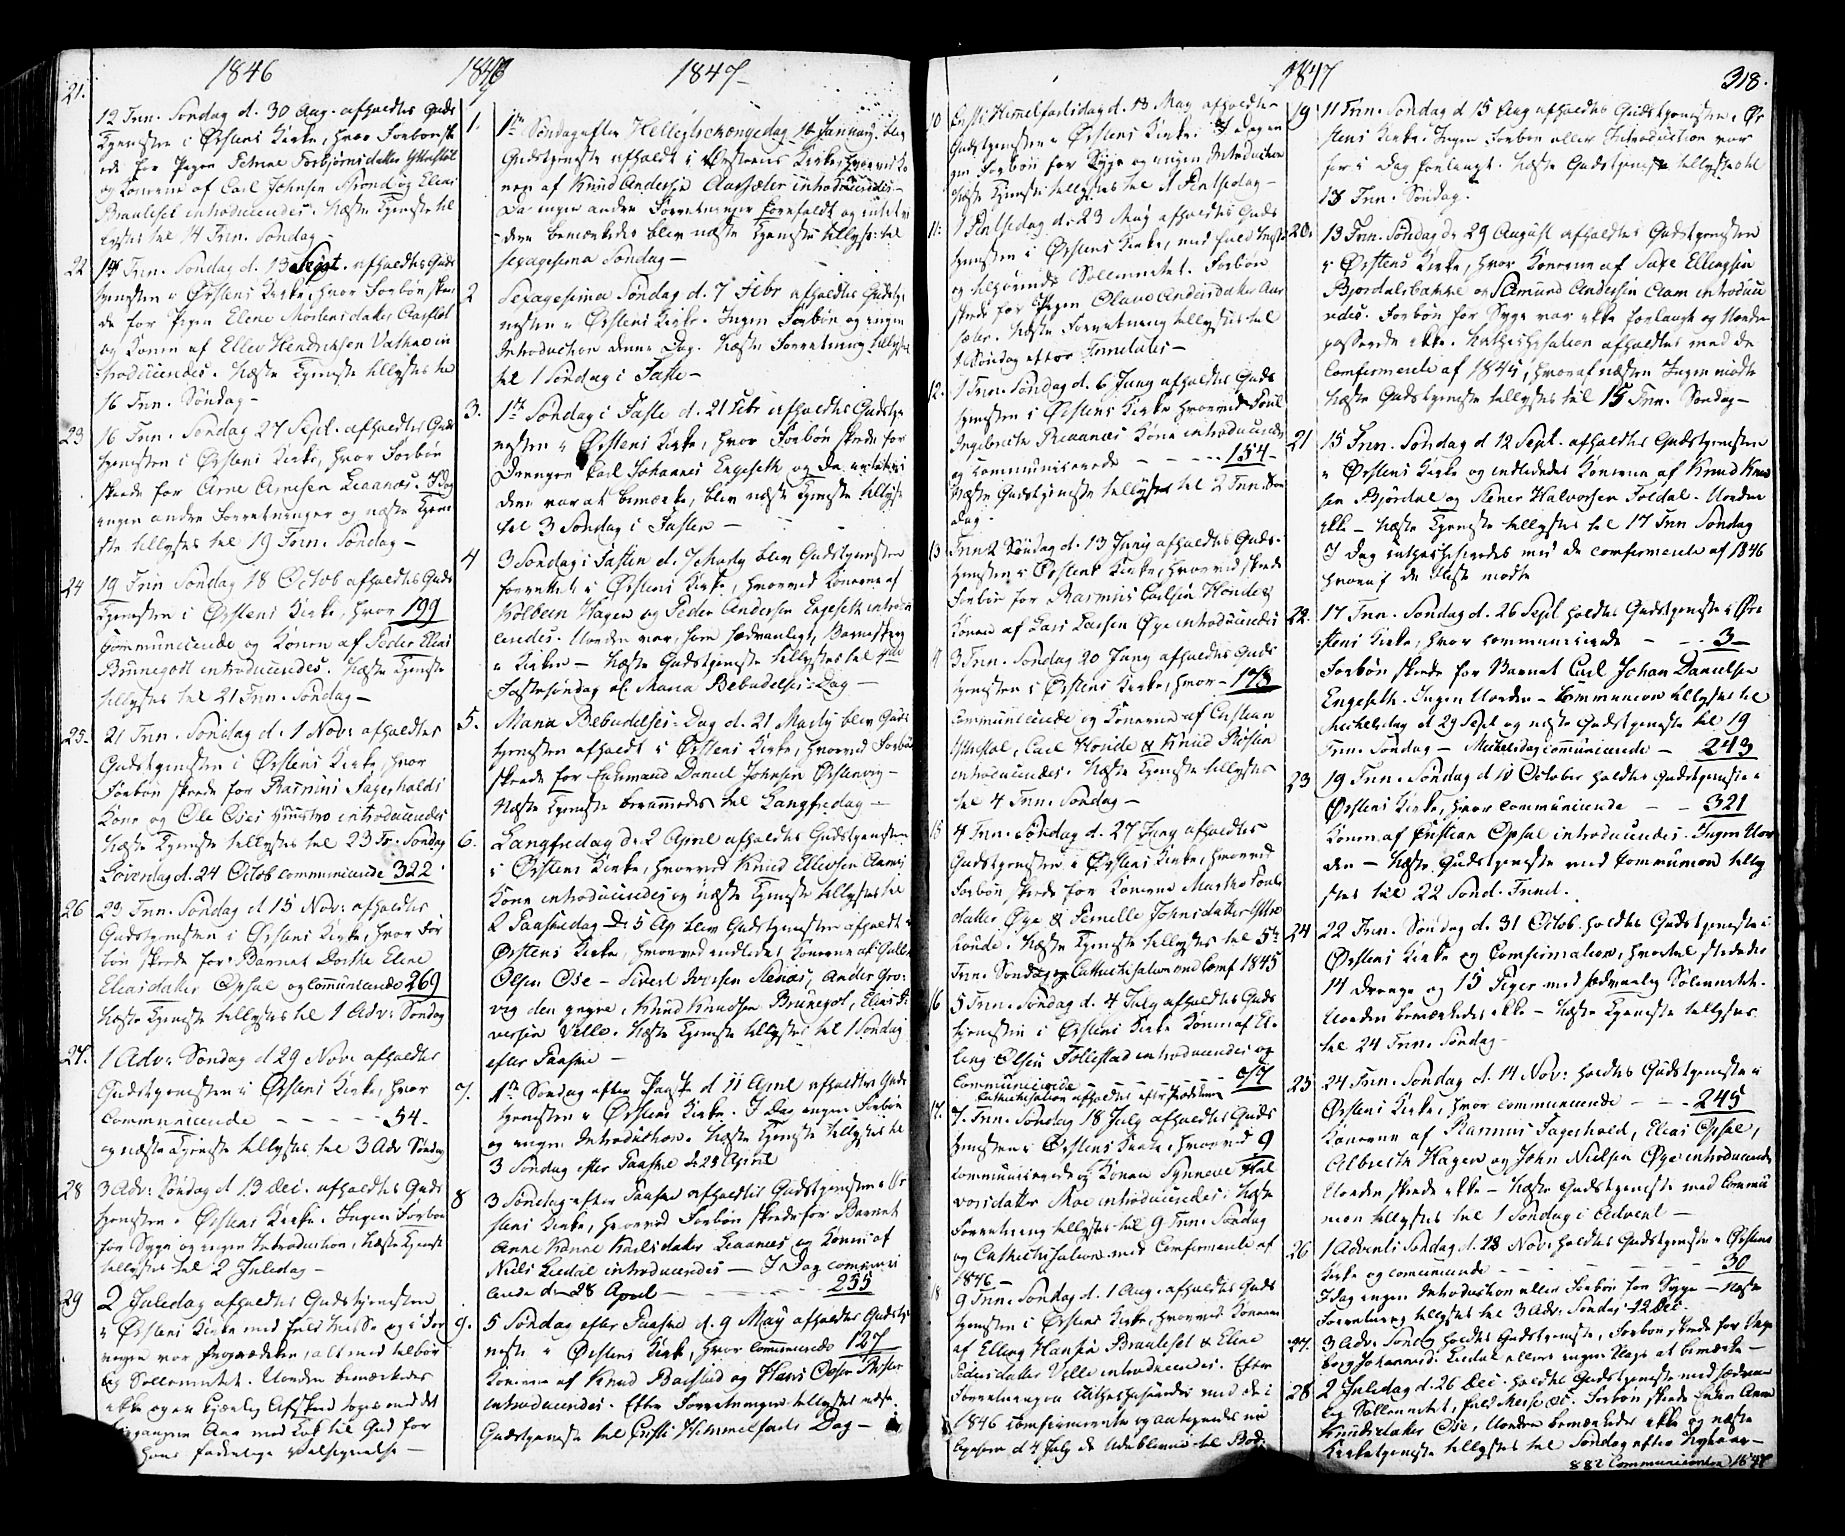 1846
21.
12 Trin. Søndag d. 30 Aug. afholdtes Guds
Tjenesten i Ørstens Kirke, hvor Forbøn ske
ede for Pigen Torbjørnsdatter
og Konerne af Carl Johnsen og Elias
introducerdes. Næste Tjeneste til
lystes til 14 Trin. Søndag –
22
14 Trin. Søndag d. 13 Sept. afholdtes Guds
tjenesten i Ørstens Kirke, hvor Forbøn ske
de for Pigen Elene Mortensdatter
og Konen af Ellev Hendriksen Vatne in
troducerdes. Næste Tjeneste tillystes til
16 Trin. Søndag –
23
16 Trin. Søndag 27 Sept. afholdtes Guds
tjenesten i Ørstens Kirke, hvor Forbøn
skede for Arne Arnesen Liaanæs. I Dag
ingen andre Forretninger og næste Tjene
ste tillystes til 19 Trin. Søndag –
24
19 Trin Søndag 18 Octob afholdtes Guds
Tjenesten i Ørstens Kirke, hvor 199
Communicerede og Konen af Peder Elias
Brunegodt introducerdes. Næste Tjeneste
tillystes til 21 Trin. Søndag –
25.
21 Trin. Søndag d. 1 Nov: afholdtes
Gudstjenesten i Ørstens Kirke, hvor
Forbøn skede for Rasmus Fagerholds
Kone og Ole Oses Hustro introducerdes
Næste Tjeneste tillystes til 23 Tr. Søndag
Løverdag d. 24 Octob communicerede 322.
26
23 Trin. Søndag d 15 Nov: afholdtes
Gudstjenesten i Ørstens Kirke, hvor For
bøn skede for Barnet Dorthe Eline
Eliasdatter Opsal og communicerede 269
Næste Tjeneste tillystes til 1 Adv: Søndag
27.
1 Adv: Søndag d 29 Nov: afholdtes
Gudstjenesten i Ørstens Kirke, hvor
communicerede – – – 54.
og næste Tjeneste tillystes til 3 Adv Søndag
28
3 Adv: Søndag d 13 Dec. afholdtes Guds
tjenesten i Ørstens Kirke. Ingen Forbøn
for Syge og ingen Introduction, Næste Tjeneste
tillystes til 2 Juledag –
29
2 Juledag afholdtes Gudstjenesten
i Ørstens Kirke med fuld Messe og i For
ningen var Prædiken, alt med tilbør
lig Sollennitet. Uorden bemærkedes
ikke og en kjærlig Afsked toges med det
Aar med Tak til Gud for
hans faderlige Velsignelse –
1846
1847 –
1.
1te Søndag efter Helligtrekongedag 10 January blev
Gudstjeneste afholdt i Ørstens Kirke, hvorved Ko
nen af Knud Andersen Aarsæter introducerdes –
Da ingen andre Forretninger forefaldt og intet vi
dere bemærkedes blev næste Tjeneste tillyst til
Sexagesima Søndag –
2
Sexagesima Søndag d. 7 Febr afholdtes Gudstje
nesten i Ørstens Kirke. Ingen Forbøn og ingen
Introduction denne Dag. Næste Forretning tillystes
til 1 Søndag i Faste –
3.
1te Søndag i Faste d. 21 Febr afholdtes Gudstje
nesten i Ørstens Kirke, hvor Forbøn skede for
Drengen Carl Johannes Engeseth og da intet vi
dere var at bemærke, blev næste Tjeneste tillyst
til 3 Søndag i Fasten –
4
3 Søndag i Fasten d. 7 Marty blev Gudstjenesten
forrettet i Ørstens Kirke, hvorved Konerne af
Kolbein Hagen og Peder Andersen Engeseth introdu
cerdes. Uorden var, som sædvanligt, Barneskrig
i Kirken – Næste Gudstjeneste tillystes til 4de
Fastesøndag el. Mariæ Bebudelses-Dag –
5.
Mariæ Bebudelses-Dag d. 21 Marty blev Guds
tjenesten afholdt i Ørstens Kirke, hvorved Forbøn
skede for Enkemand Daniel Johnsen Ørstenvig –
Næste Tjeneste berammedes til Langfredag –
6.
Langfredag d. 2 April afholdtes Gudstjenesten
i Ørstens Kirke, hvorved Knud Ellevsen Aams
Kone introducerdes og næste Tjeneste tillystes til
2 Paaskedag D: 5 Ap blev Gudstjenesten afholdt i
Ørstens Kirke, hvorved indledet Konerne af: Gulle
Olsen Ose – Sivert Iversen Nedreaas, Anders Gro
vig den yngre, Knud Knudsen Brunegot, Elias Si
versen Velle. Næste Tjeneste tillystes til 1 Søndag
efter Paaske –
7.
1te Søndag efter Paaske d 11 April afholdtes Guds
tjenesten i Ørstens Kirke. I Dag ingen Forbøn
og ingen Introduction. Næste Tjeneste tillystes til
3 Søndag efter Paaske d 25 April
8
3 Søndag efter Paaske afholdtes Gudstjenesten i Ør
stens Kirke, hvorved Forbøn skede for Barnet
Anne Karine Karlsdatter Liaanæs og Konen af
Niels Liedal introducerdes – I Dag communi
cerede d. 28 April – – – 255
9.
5 Søndag efter Paaske d. 9 May afholdtes Gudstje
neste i Ørstens Kirke, hvor communicerede 127
Konerne af Knud Bolstad og Hans Olsen
introducerdes. Efter Forretningen tillystes næste
Gudstjeneste til Christi Himmelfarts Dag –
1847
318.
10
Christi Himmelfartsdag d. 13 May afholdtes
Gudstjenesten i Ørstens Kirke. I Dag in
gen Forbøn for Syge og ingen Introduction
Næste Tjeneste tillystes til 1 Pintsedag –
11.
1 Pintsedag d. 23 May afholdtes Guds
tjenesten i Ørstens Kirke, med fuld Messe
og tilhørende Sollennitet. Forbøn
skede for Pigen Olave Andersdatter Aar
sæter. Næste Forretning tillystes til
1 Søndag efter Trinitatis –
12.
1 Trin. Søndag d. 6 Juny afholdtes Guds
tjenesten i Ørstens Kirke hvorved Poul
Ingebrigts Kone introducerdes
og communicerede – – – 154 –
Næste Gudstjeneste tillystes til 2 Trin. Søn
dag.
13
Trin 2 Søndag d. 13 Juny afholdtes Guds-
tjenesten i Ørstens Kirke, hvorved skede
Forbøn for Rasmus Carlsen Hovdes
Konen af Lars Larsen Øye introducerdes
4
3 Trin. Søndag 20 Juny afholdtes Guds
tjenesten i Ørstens Kirke, hvor – 178
communicerede og Konerne af Cristian
Ytrestøl, Carl Hovde & Knud
introducerdes. Næste Tjeneste tillystes
til 4 Trin. Søndag –
15
4 Trin. Søndag d. 27 Juny afholdtes
Gudstjenesten i Ørstens Kirke, hvorved
Forbøn skede for Konerne Marthe Pouls
datter Øye & Pernille Johnsdatter Ytre
hovde. Næste Tjeneste tillystes til 5te
Trin. Søndag og Catechisation med Conf 1845
6
5 Trin. Søndag d. 4 July afholdtes Guds
tjenesten i Ørstens Kirke Konen af El
ling Olsen Follestad introducerdes og
Communicerede – – – 97
Catechisation afholdtes efter Prædiken
17.
7. Trin. Søndag 18 July afholdtes Guds
tjenesten i Ørstens Kirke, hvorved 9
communicerede og Konen Synneve Hal
vorsdatter Moe introducerdes. Næste
Forretning tillystes til 9 Trin. Søndag
og Catechisation med Confirmerte af
1846 –
18
9 Trin. Søndag d. 1 Aug. afholdtes Guds
tjenesten i Ørstens Kirke, hvorved Konerne
af Elling Hansen & Eline
Pedersdatter Velle introducerdes. Efter
Forretningen Catechiseredes med de i
1846 confirmerte og antegnedes ved
d 4 July de Udeblevne til Bod.
19
11 Trin. Søndag d 15 Aug afholdtes Gudstjenesten i Ør
stens Kirke. Ingen Forbøn eller Introduction var
for i Dag forlangt. Næste Gudstjeneste tillystes til
13 Trin. Søndag.
20.
13 Trin. Søndag d. 29 August afholdtes Gudstjenesten
i Ørstens Kirke, hvor Konerne af Saxe Ellingsen
Bjordalsbakke og Aamund Andersen Aam introducer
edes. Forbøn for Syge var ikke forlangt og Uorden
passerede ikke. Kathechisation afholdtes med de
Confirmerte af 1845, hvoraf næsten Ingen mødte
Næste Gudstjeneste tillystes til 15 Trin. Søndag –
21
15 Trin. Søndag d 12 Sept. afholdtes Gudstjenesten
i Ørstens Kirke og indledede Konerne af Knud Knud
sen Bjørdal og Stener Halvorsen Foldal. Uorden
ikke – Næste Tjeneste tillystes til 17 Trin Søndag
I Dag cathechiseredes med de confirmerte af 1846
hvoraf de fleste mødte
22.
17 Trin. Søndag d. 26 Sept holdtes Gudstjeneste i Ør
stens Kirke, hvor communicerede – – – 3 –
Forbøn skede for Barnet Carl Johan Danielsen
Engeseth. Ingen Uorden – Communion tillystes til
Mickelsdag d 29 Sept og næste Gudstjeneste til 19
Trin. Søndag – Mickelsdag communicerede – 243
23
19 Trin. Søndag d 10 October holdtes Gudstjeneste i
Ørstens Kirke, hvor communicerede – – 321
Konen af Cristian Opsal introducerdes. Ingen Uor
den – Næste Gudstjeneste med Communion tilly
stes til 22 Sønd. Trinit.
24
22 Trin. Søndag d. 31 Octob. holdtes Gudstjeneste i
Ørstens Kirke og Confirmation, hvortil stededes
14 Drenge og 15 Piger med sædvanlig Sollennitet.
Uorden bemærkedes ikke – Næste Tjeneste tillystes
til 24 Trin. Søndag –
25
24 Trin. Søndag d. 14 Nov: holdtes Gudstjeneste i
Ørstens Kirke, hvor communicerede – – – 245
Konerne af Rasmus Fagerhold, Elias Opsal,
Albreckt Hagen og John Nielsen Øye introducerdes
Uorden skede ikke – Næste Gudstjeneste med Commu
nion tillystes til 1 Søndag i Advent –
26
1 Advents Søndag d. 28 Nov: holdtes Gudstjeneste i Ørstens
Kirke og comunicerede – – – 30
I Dag ingen Introduktion eller Forbøn for Syge – Næste
Forretning tillystes til 3 Adv. Søndag 12 Dec
27.
3 Adv. Søndg holdtes Gudstjeneste, Forbøn skede for
Johannesd. Liedal ellers ingen Ting at bemærke –
28
2 Juledag d. 26 Dec. holdtes Gudstjeneste med sædvan
lig Sollennitet, fuld Messe &c. Forbøn skede Enken Anne
Knudsdatter Ose, Uorden bemærkedes ikke og næste
Kirketjeneste tillystes til Søndag efter Nytaar –
882 Communicanter 1847